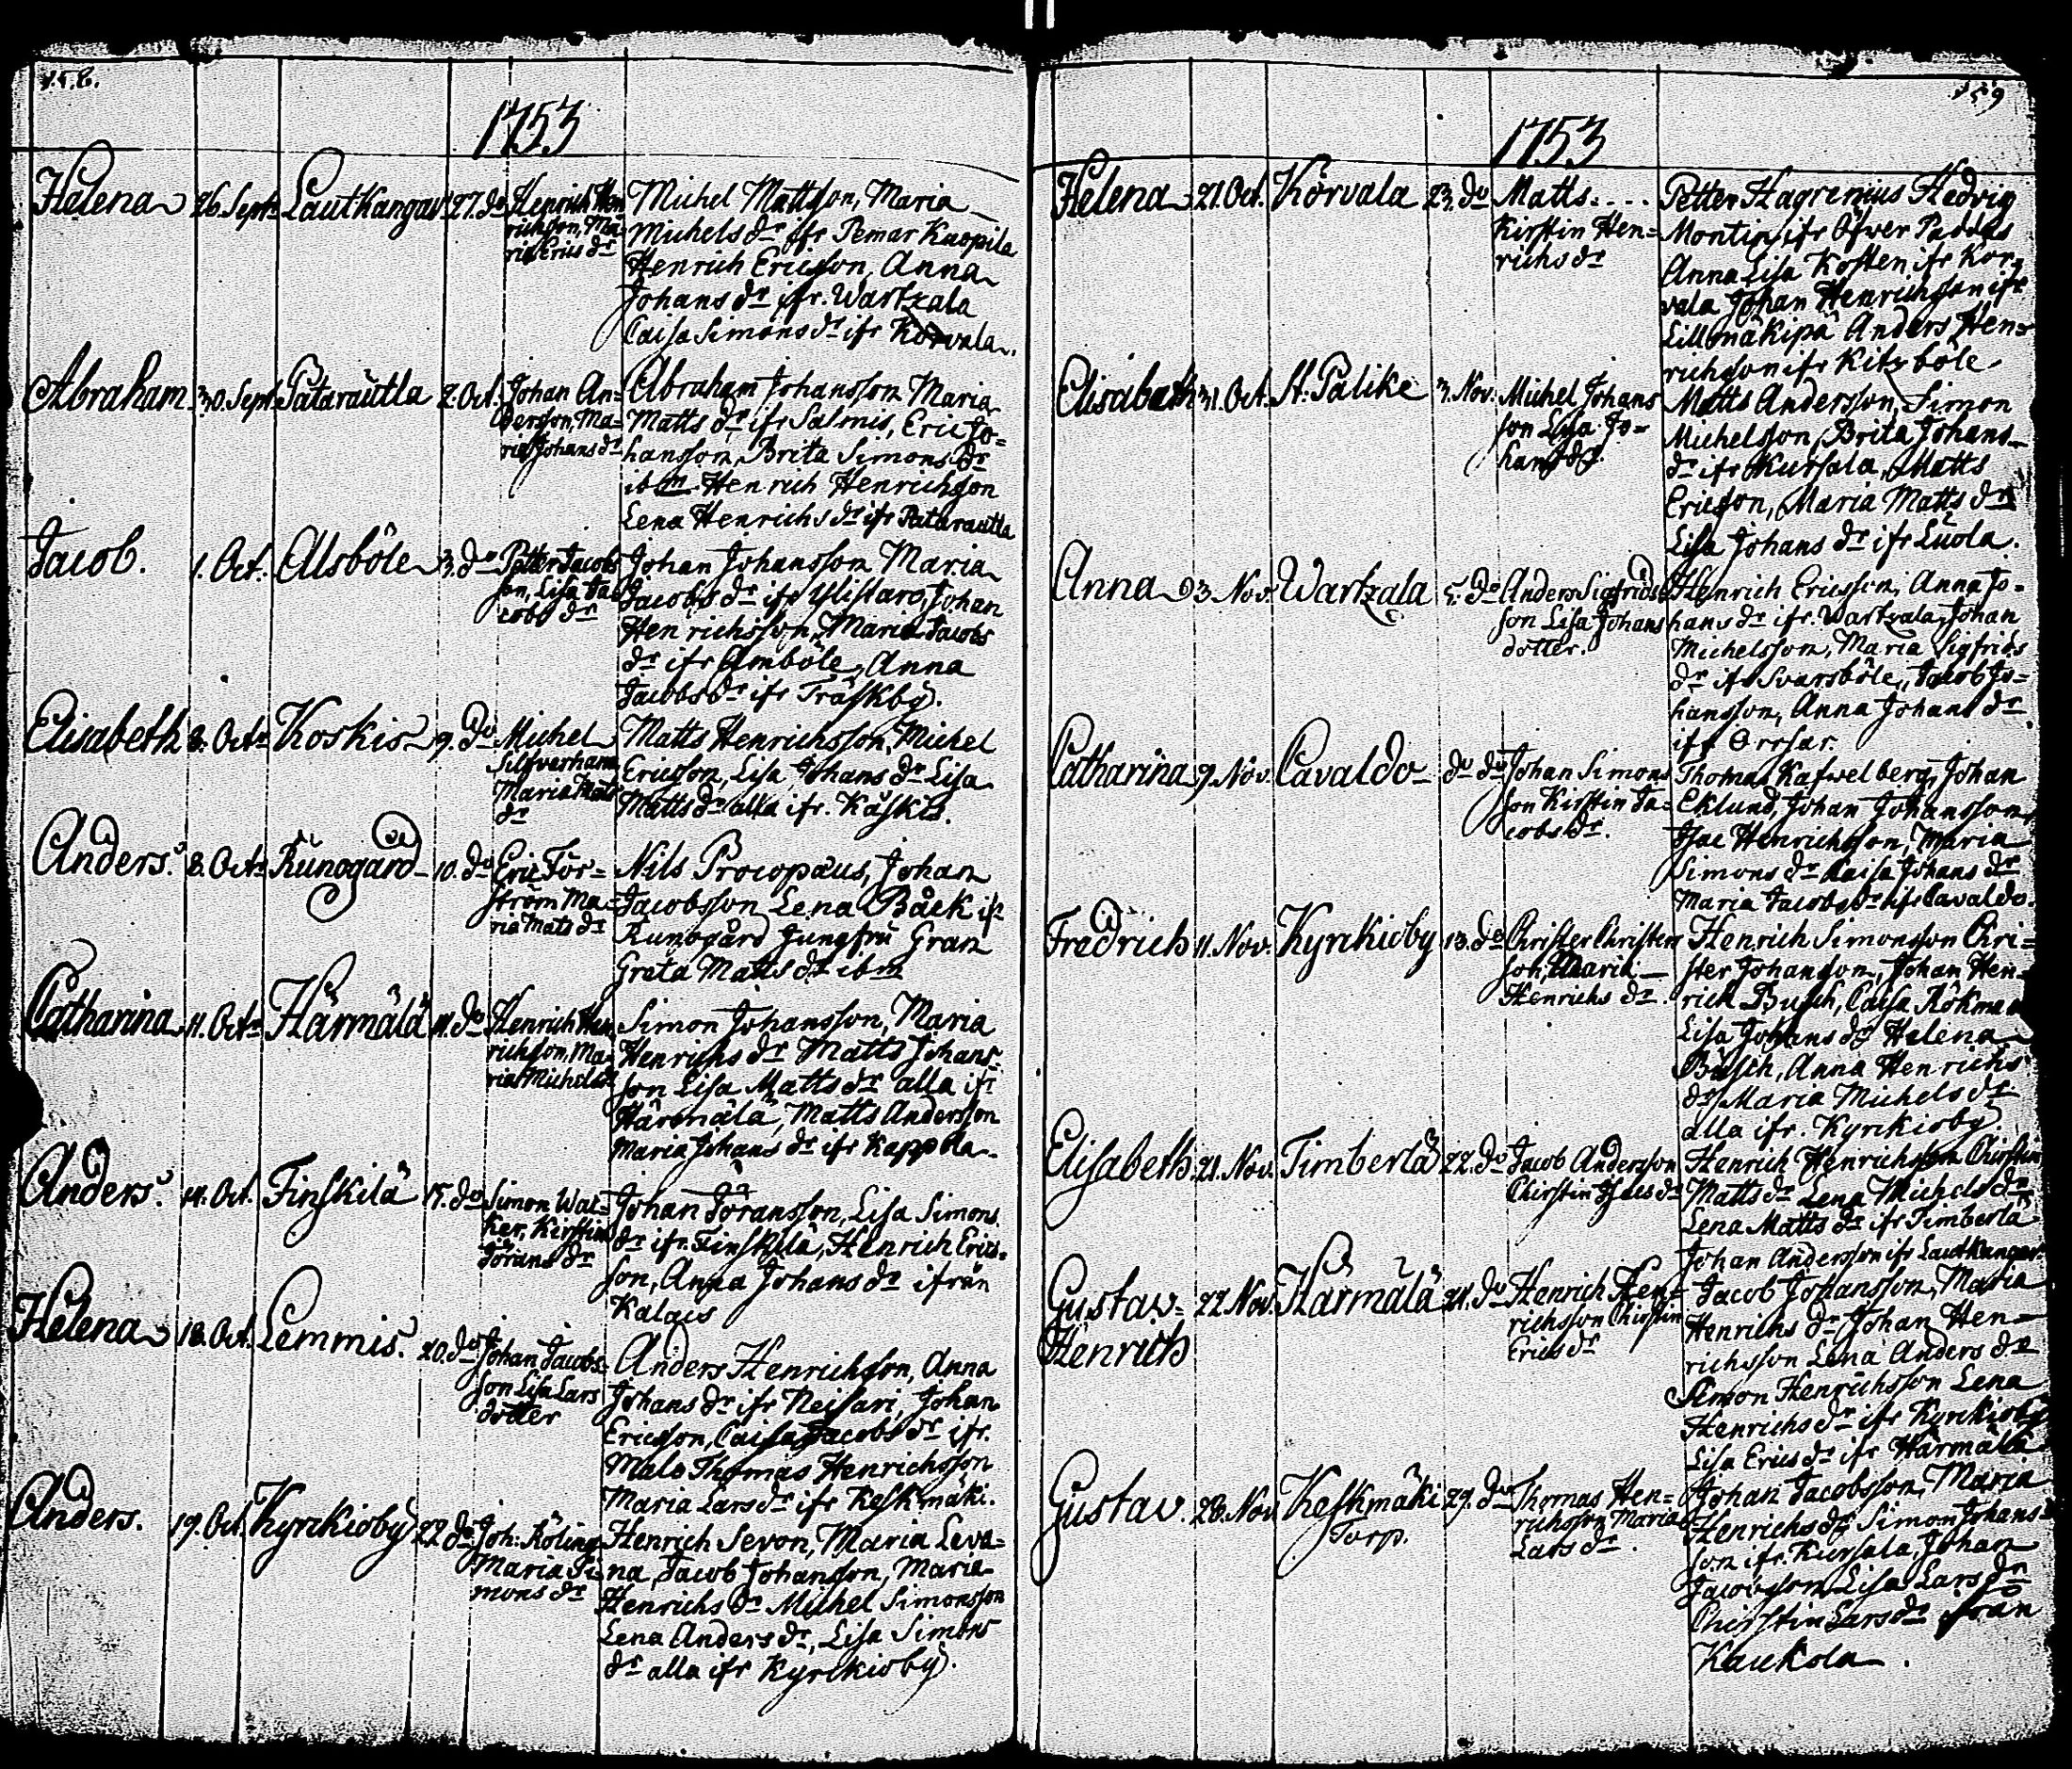 158.
1753
Helena 26. Septr Lautkangar 27. do Henrich Hen
richson, Ma=
ria Erics dr
Michel Mattsson, Maria
Michels dr ifr Pemar Kaopila
Henrich Ericsson, Anna
Johans dr ifr. Wartzala
Caisa Simons dr ifr Korvala.
Abraham 30. Sept. Patarautla 2. Oct. Johan An=
dersson, Ma=
ria Johans dr
Abraham Johansson Maria
Matts dr ifr Salmis, Eric Jo=
hansson, Brita Simons dr
ibm. Henrich Henrichson
Lena Henrichs dr ifr Patarautla
Jacob. 1. Oct. Alsböle 3. do Petter Jacobs
son, Lisa Ja=
cobs dr
Johan Johansson Maria
Jacobs dr ifr Ylistaro, Johan
Henrichsson, Maria Jacobs
dr ifr Amböle, Anna
Jacobs dr ifr Träskby.
Elisabeth 8. Octr Koskis 9. do Michel
Silfverhane
Maria Mats
dr
Matts Henrichsson, Michel
Ericsson, Lisa Johans dr Lisa
Matts dr alla ifr. Käskis.
Anders. 8. Octr Runogård 10. do Eric För=
ström Ma=
ria Mats dr
Nils Procopæus, Johan
Jacobsson Lena Båck ifr
Runogård Jungfru Gran
Greta Matts dr ibm
Catharina 11. Octr Härmälä 11. do Henrich Hen
richson, Ma=
ria Michels dr
Simon Johansson, Maria
Henrichs dr Matts Johans=
son Lisa Matts dr alla ifr
Härmälä, Matts Andersson
Maria Johans dr ifr Kappila.
Anders. 14. Oct. Finskilä 15. do Simon Wal=
ker, Kirstin
Jörans dr
Johan Jöransson, Lisa Simons
dr ifr. Finskilä, Henrich Erics=
son, Anna Johans dr ifrån
Kalais
Helena 18. Oct. Lemmis. 20. do Johan Jacobs=
son Lisa Lars
dotter
Anders Henrichson, Anna
Johans dr ifr Neisari, Johan
Ericsson, Caisa Jacobs dr ifr.
Malo Thomas Henrichsson
Maria Lars dr ifr Keskmäki.
Anders. 19. Oct. Kyrkioby 22 do Joh: Röling
Maria Si=
mons dr
Henrich Sevon, Maria Leva=
na, Jacob Johanson, Maria
Henrichs dr Michel Simonsson
Lena Anders dr, Lisa Simons
dr alla ifr Kyrkioby.
159
1753
Helena 21. Oct. Körvala 23. do Matts....
Kirstin Hen=
richs dr
Petter Hagremius Hedvig
Montin ifr Öfver Paddas
Anna Lisa Kosten ifr Kor=
vala Johan Henrichsson ifr
Lillmäkipä Anders Hen=
richson ifr Kitzböle
Elisabeth 31. Oct. St. Palike 3. Nov. Michel Johans
son Lisa Jo=
hans dr.
Matts Andersson, Simon
Michelsson, Brita Johans
dr ifr Kursala, Matts
Ericson, Maria Matts dr
Lisa Johans dr ifr Luola.
Anna 3. Nov. Wartzala 5. do Anders Sigfrids
son Lisa Johans
dotter.
Henrich Ericsson, Anna Jo=
hans dr ifr. Wartzala, Johan
Michelsson, Maria Sigfrids
dr ifr Svarsböle, Jacob Jo=
hansson, Anna Johans dr
ifr Orrsar.
Catharina 9. Nov. Cavaldo do do Johan Simons
son Kirstin Ja=
cobs dr.
Thomas Kafwelberg, Johan
Eklund, Johan Johansson,
Isac Henrichsson, Maria
Simons dr Kaisa Johans dr
Maria Jacobs dr ifr Cavaldo.
Fredrich 11. Nov. Kyrkioby 13. do Christer Christers
son, Maria
Henrichs dr.
Henrich Simonsson Chri=
ster Johanson, Johan Hen=
rich Busch, Caisa Rökman
Lisa Johans dr Helena
Busch, Anna Henrichs
dr, Maria Michels dr
alla ifr. Kyrkioby
Elisabeth 21. Nov. Timberla 22. do Jacob Andersson
Chirstin Isacs dr
Henrich Henrichsson Chirstin
Matts dr Lena Michels dr
Lena Matts dr ifr Timberla
Johan Andersson ifr Lautkangar.
Gustav= 22 Nov. Härmälä 24. do Henrich Hen=
Henrich
richsson Chirstin
Erics dr
Jacob Johansson, Maria
Henrichs dr, Johan Hen=
richsson Lena Anders dr
Simon Henrichsson Lena
Henrichs dr ifr Kyrkioby
Lisa Erics dr ifr Härmälä
Gustav. 28. Nov Keskmäki 29. do Thomas Hen=
Torp.
richsson Maria
Lars dr.
Johan Jacobsson, Maria
Henrichs dr, Simon Johans
son ifr. Kursala, Johan
Jacobsson Lisa Lars dr
Chirstin Lars dr ifrån
Kaukola.